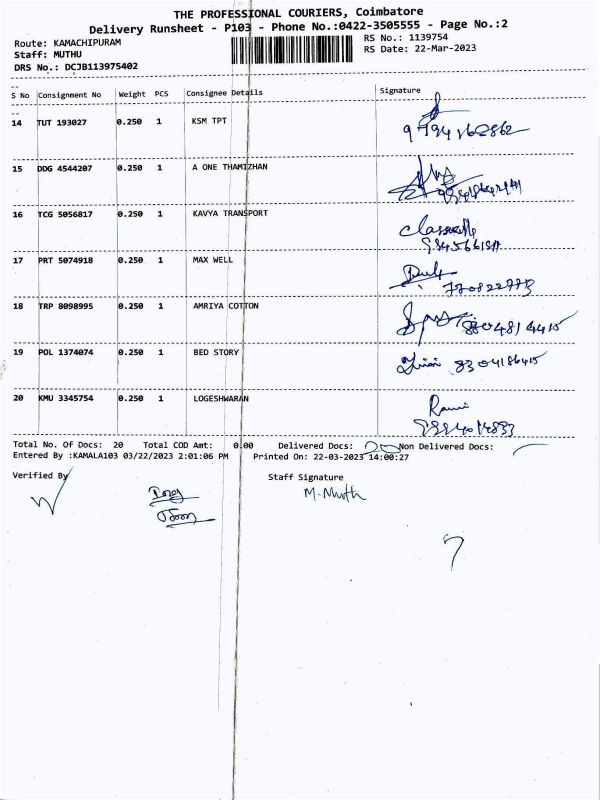 THE PROFESSIONAL COURIERS, Coimbatore
Delivery Runsheet - P103 - Phone No.:0422-3505555 - Page No.:2
Route: KAMACHIPURAM
RS No.: 1139754
Staff: MUTHU
RS Date: 22-Mar-2023
DRS No.: DCJB113975402
S No Consignment No Weight PCS Consignee Details Signature
14 TUT 193027 0.250 1 KSM TPT
15 DDG 4544207 0.250 1 A ONE THAMIZHAN
16 TCG 5056817 0.250 1 KAVYA TRANSPORT
17 PRT 5074918 0.250 1 MAX WELL
18 TRP 8098995 0.250 1 AMRIYA COTTON
19 POL 1374074 0.250 1 BED STORY
8304186415
20 KMU 3345754 0.250 1 LOGESHWARAN
Total No. Of Docs: 20 Total COD Amt: 0.00 Delivered Docs: 20 Non Delivered Docs:
Entered By :KAMALA103 03/22/2023 2:01:06 PM Printed On: 22-03-2023 14:00:27
Verified By
Staff Signature
M. Muth